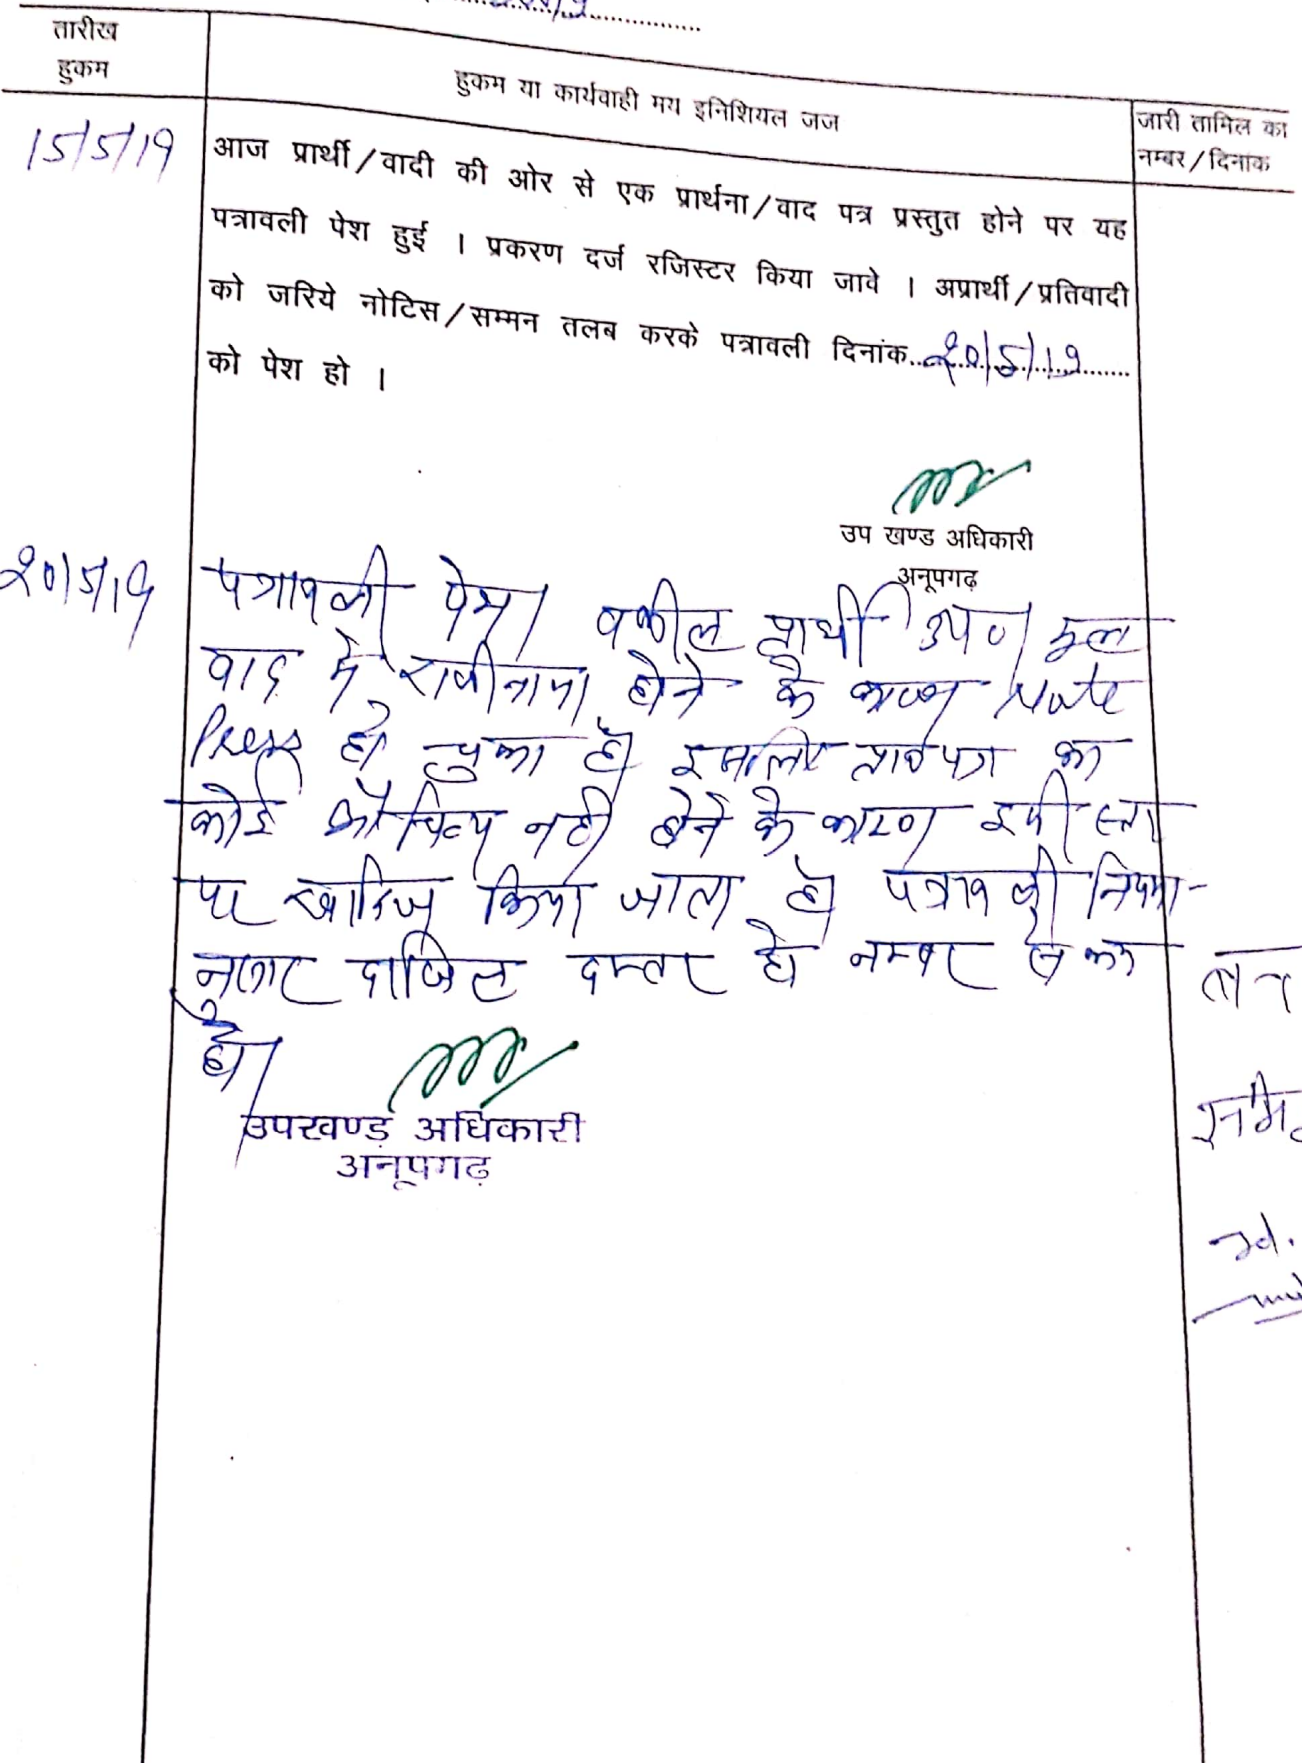 तारीख
हुकम
हुकम या कार्यवाही मय इनिशियल जज
जारी तामिल का
नम्बर/दिनांक
15/5/19
आज प्रार्थी/वादी की ओर से एक प्रार्थना/वाद पत्र प्रस्तुत होने पर यह
पत्रावली पेश हुई । प्रकरण दर्ज रजिस्टर किया जावे । अप्रार्थी/प्रतिवादी
को जरिये नोटिस/सम्मन तलब करके पत्रावली दिनांक..20/5/19......
को पेश हो ।
उप खण्ड अधिकारी
अनूपगढ़
20/5/19
पत्रावली पेश। वकील प्रार्थी उप० मूल
वाद में राजीनामा होने के कारण Note
Press हो चुका है इसलिए का
कोई औचित्य नही होने के कारण इसी स्तर
पर खारिज किया जाता है पत्रावली नियमा-
नुसार दाखिल दफ्तर हो नम्बर से कम
हो।
उपखण्ड अधिकारी
अनूपगढ़